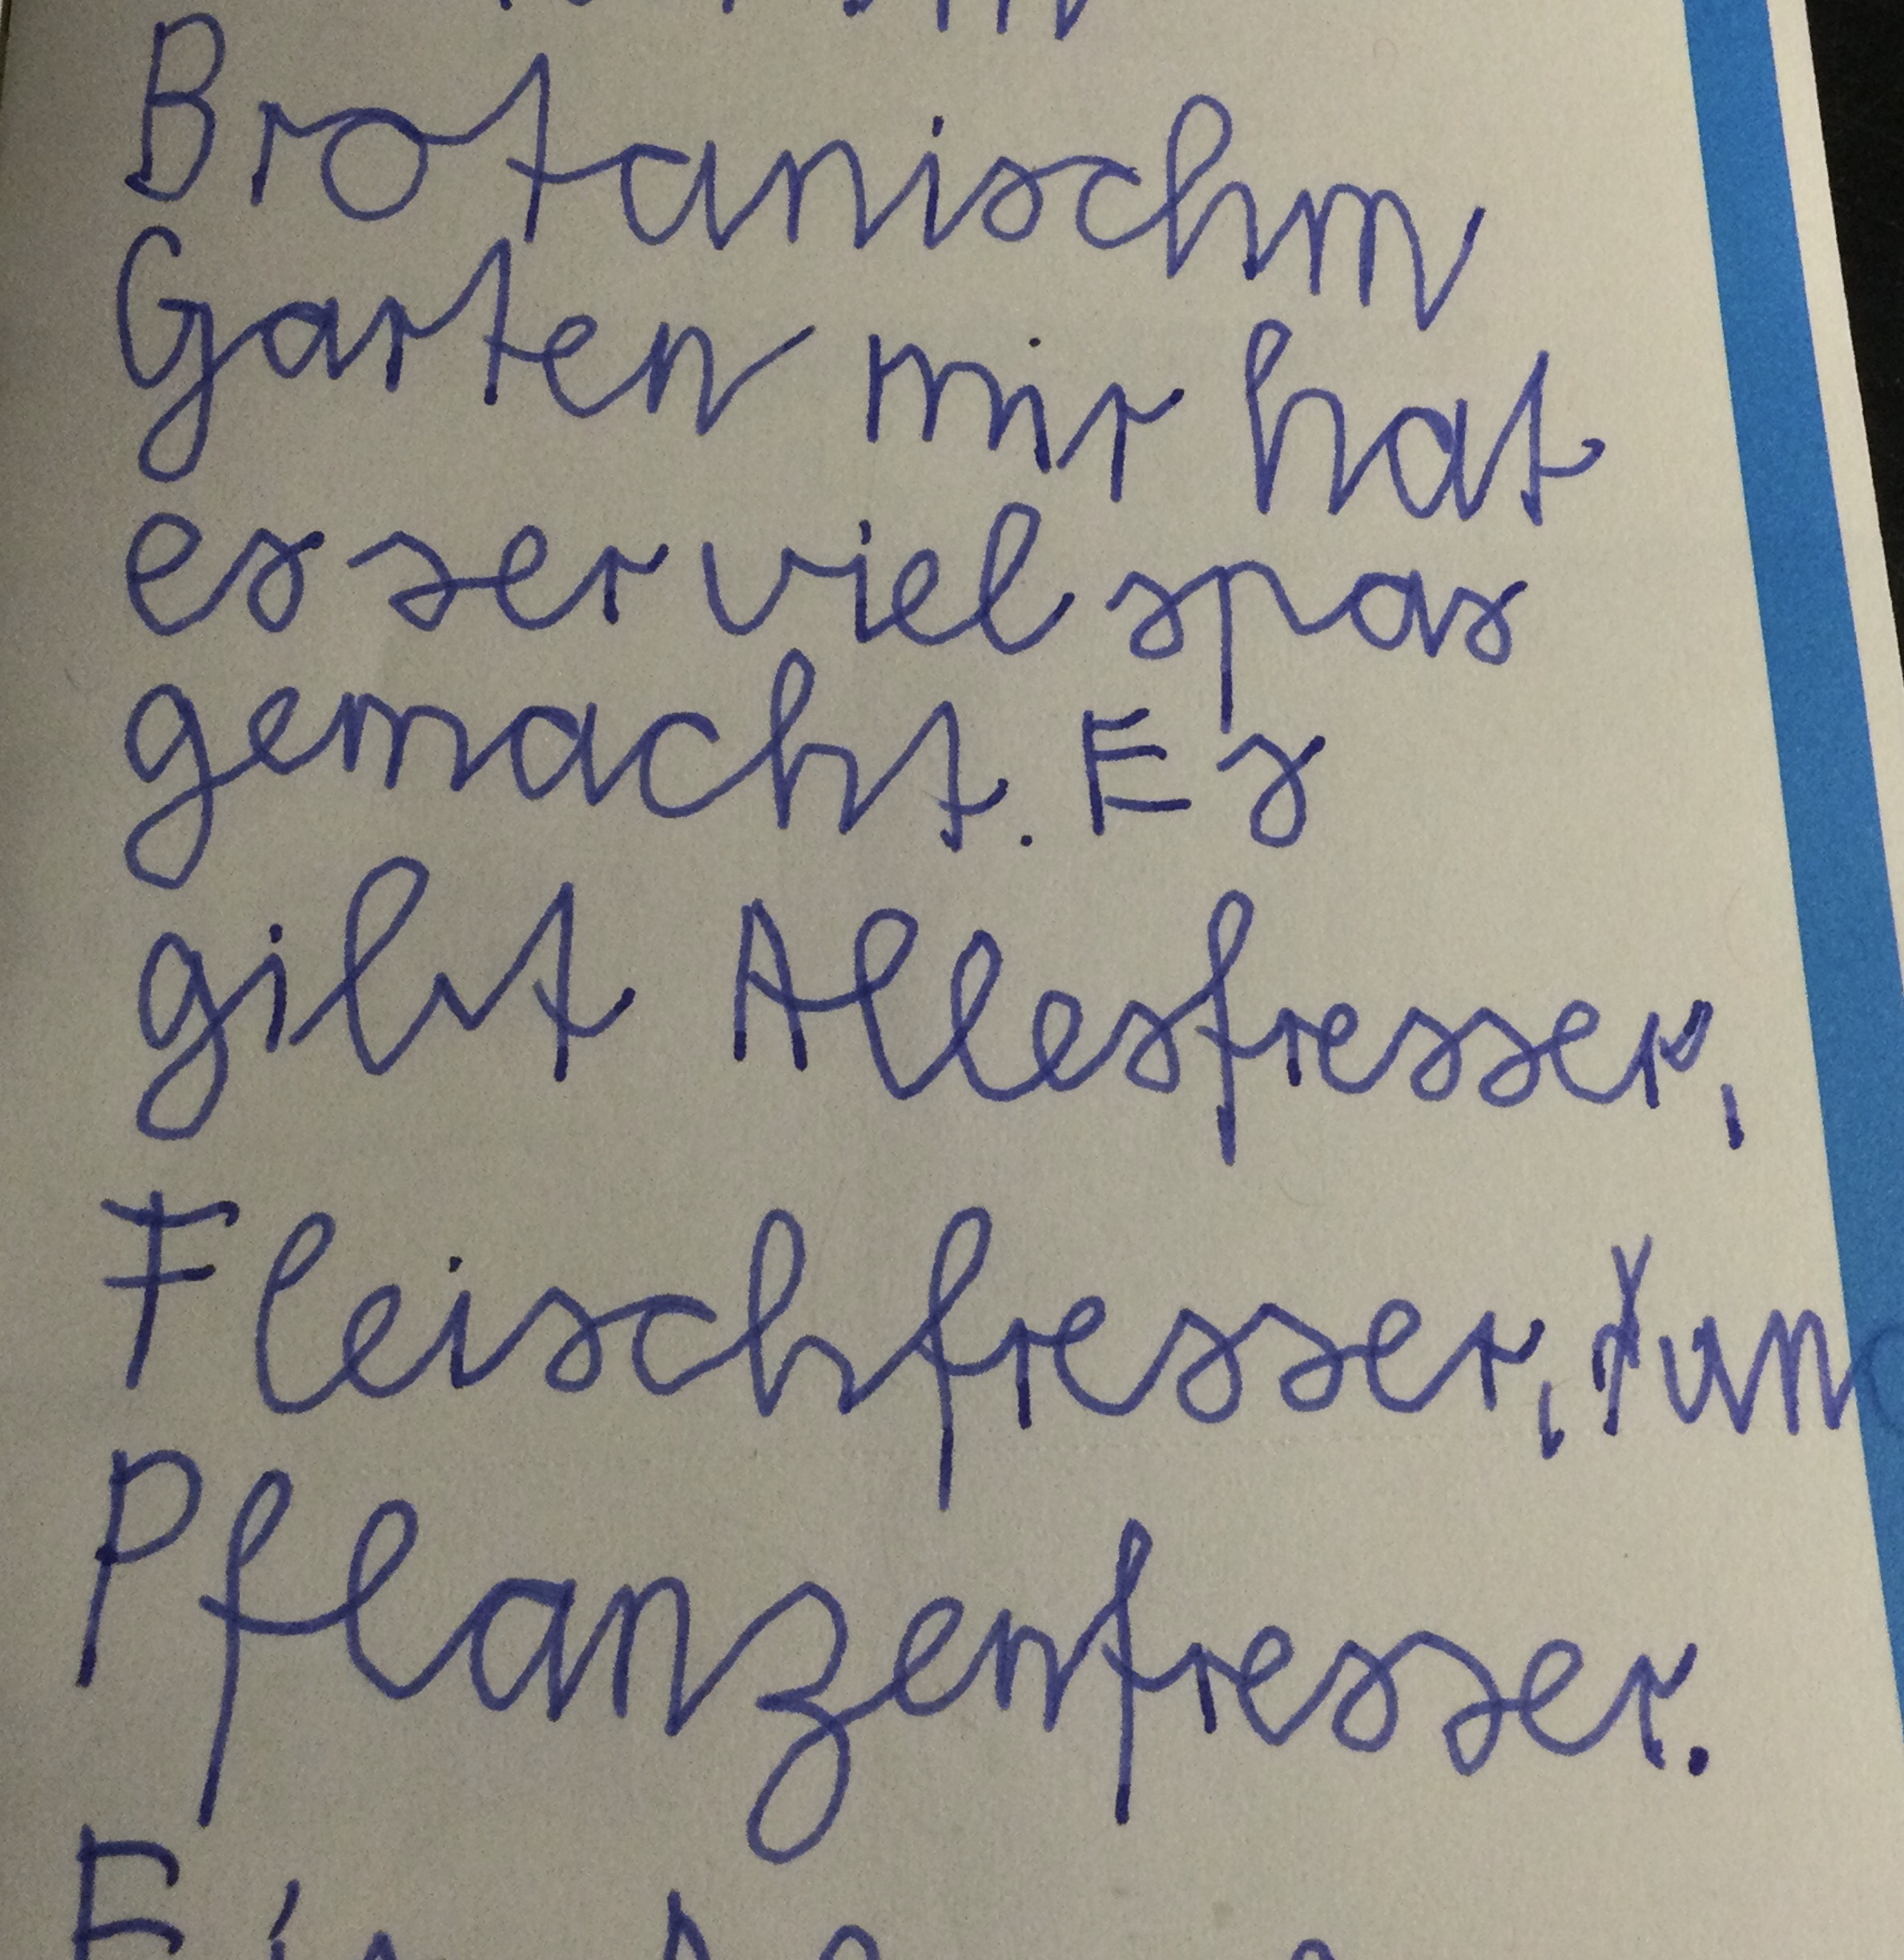 Brotanischm
Garten mir hat
es ser viel spas
gemacht. Es
gibt Allesfresser,
Fleischfresser, un
Pflanzenfresser.